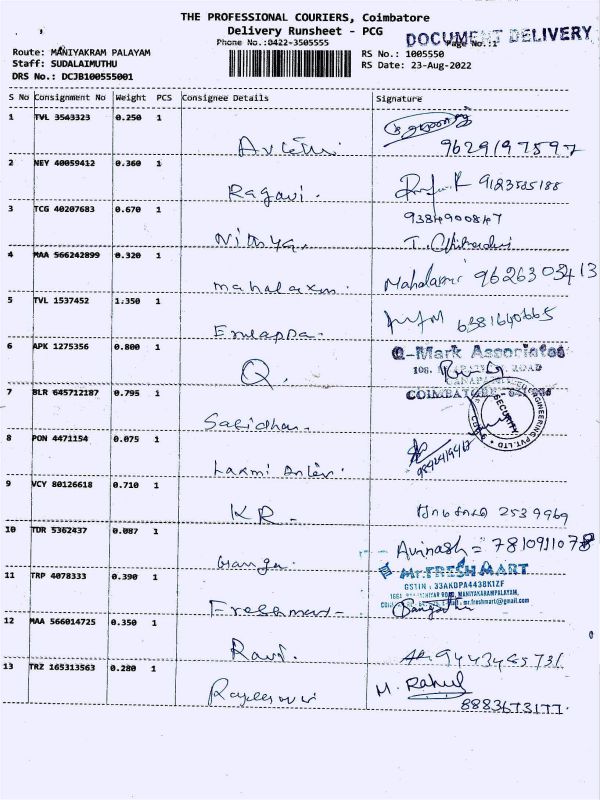 THE PROFESSIONAL COURIERS, Coimbatore
Delivery Runsheet - PCG
Phone No.:0422-3505555
DOCUMENT DELIVERY
Page No.:1
Route: MANIYAKRAM PALAYAM
RS No.: 1005550
Staff: SUDALAIMUTHU
RS Date: 23-Aug-2022
DRS No.: DCJB100555001
S No Consignment No Weight PCS Consignee Details Signature
1 TVL 3543323 0.250 1
9629197597
2 NEY 40059412 0.360 1
Ragavi. 9123535188
3 TCG 40207683 0.670 1
9384900847
Nithya.
4 MAA 566242899 0.320 1
mahalaxmi. Mahalaxmi 9626303413
5 TVL 1537452 1.350 1
6381640665
6 APK 1275356 0.800 1
Q.
Q-Mark Associates
108. ROAD
COIMBATORE
7 BLR 645712187 0.795 1
Sasidhar.
ENGINEERING PVT. LTD
SECURITY
8 PON 4471154 0.075 1
Laxmi
9 VCY 80126618 0.710 1
KR - 2539969
10 TDR 5362437 0.087 1
Ganga. Avinash = 7810911078
11 TRP 4078333 0.390 1
Mr.FRESH MART
MANIYAKARAMPALAYAM,
mr.freshmart@gmail.com
Freshmart - Sangatha
12 MAA 566014725 0.350 1
Ravi. 9443465731
13 TRZ 165313563 0.280 1
M. Rahul
8883673177.